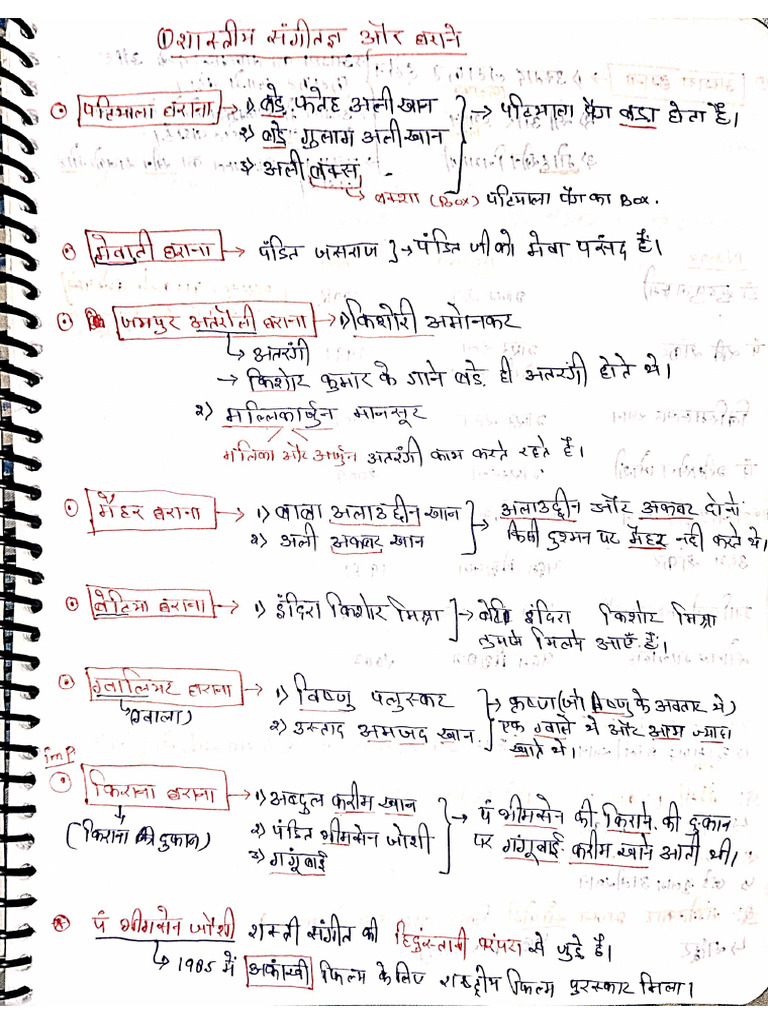 ① शास्त्रीय संगीतज्ञ और घराने
पटियाला घराना → 1) बड़े फतेह अली खान
2) बड़े गुलाम अली खान
3) अली बक्स
→ पटियाला पैग बड़ा होता है।
→ बक्शा (Box) पटियाला पैग का Box.
मेवाती घराना → पंडित जसराज → पंडित जी को मेवा पसंद है।
जयपुर अतरौली घराना → 1) किशोरी अमोनकर
→ अतरंगी
→ किशोर कुमार के गाने बड़े ही अतरंगी होते थे।
2) मल्लिकार्जुन मानसूर
मलिका और अर्जुन अतरंगी काम करते रहते हैं।
मैहर घराना → 1) बाबा अलाउद्दीन खान
2) अली अकबर खान
→ अलाउद्दीन और अकबर दोनों
किसी दुश्मन पर मैहर नही करते थे।
बेतिया घराना → 1) इंदिरा किशोर मिश्रा → बेटी इंदिरा किशोर मिश्रा
तुमसे मिलने आएँ हैं।
ग्वालियर घराना → 1) विष्णु पलुस्कर
→ (ग्वाला)
2) उस्ताद अमजद खान
→ कृष्ण (जो विष्णु के अवतार थे)
एक ग्वाले थे और आम ज्यादा
खाते थे।
imp
किराना घराना → 1) अब्दुल करीम खान
(किराना की दुकान)
2) पंडित भीमसेन जोशी
3) गंगूबाई
→ पं भीमसेन की किराने की दुकान
पर गंगूबाई करीम खाने आती थी।
पं भीमसेन जोशी शस्त्री संगीत की हिंदुस्तानी परंपरा से जुड़े हैं।
→ 1985 में अकांखी फिल्म के लिए राष्ट्रीय फिल्म पुरस्कार मिला।